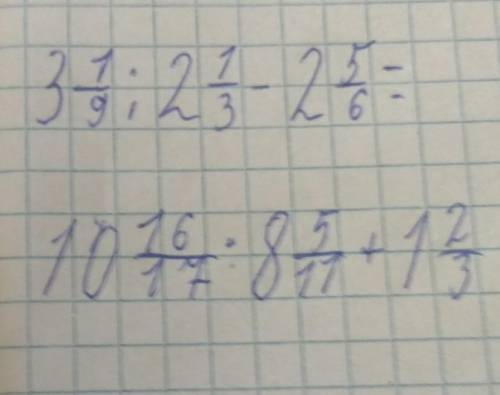 3 1/9 : 2 1/3 - 2 5/6 =
10 16/17 : 8 5/11 + 1 2/3